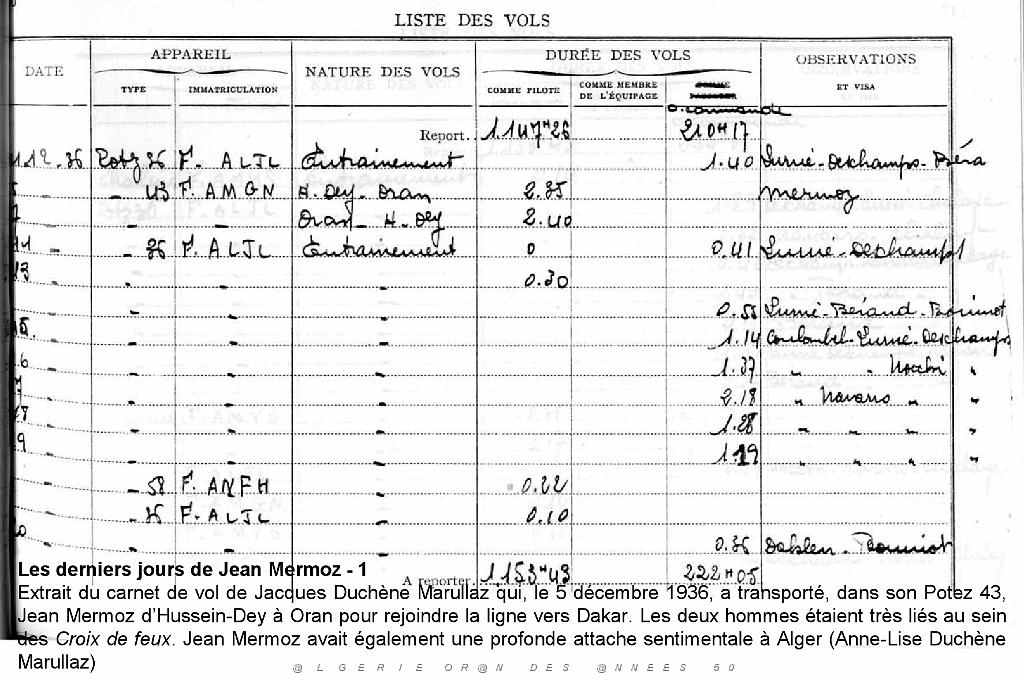 LISTE DES VOLS
DATE APPAREIL NATURE DES VOLS DURÉE DES VOLS OBSERVATIONS ET VISA
TYPE IMMATRICULATION COMME PILOTE COMME MEMBRE DE L'ÉQUIPAGE
D. commande
Report. 1147H26 210H17
1.12.36 Potez 36 F. ALJL Entrainement 1.40 Lumé-Deschamps-Béra
- 43 F. AMGN H. Dey-Oran 2.35 Mermoz
Oran - H. Dey 2.40
11 - - 36 F. ALJL Entrainement 0 0.41 Lumé-Deschamps
13 0.30
0.55 Lumé-Béraud-
15. 1.14 Lumé-Deschamps
6 1.37
7 2.18 Navarro
18 1.28
9 1.19
- 58 F. ANFH 0.22
- 36 F. ALJL 0.10
0.36
A reporter. 1153H43 222H05
Les derniers jours de Jean Mermoz - 1
Extrait du carnet de vol de Jacques Duchène Marullaz qui, le 5 décembre 1936, a transporté, dans son Potez 43,
Jean Mermoz d'Hussein-Dey à Oran pour rejoindre la ligne vers Dakar. Les deux hommes étaient très liés au sein
des Croix de feux. Jean Mermoz avait également une profonde attache sentimentale à Alger (Anne-Lise Duchène
Marullaz)
@ L G E R I E O R @ N D E S @ N N E E S 5 0